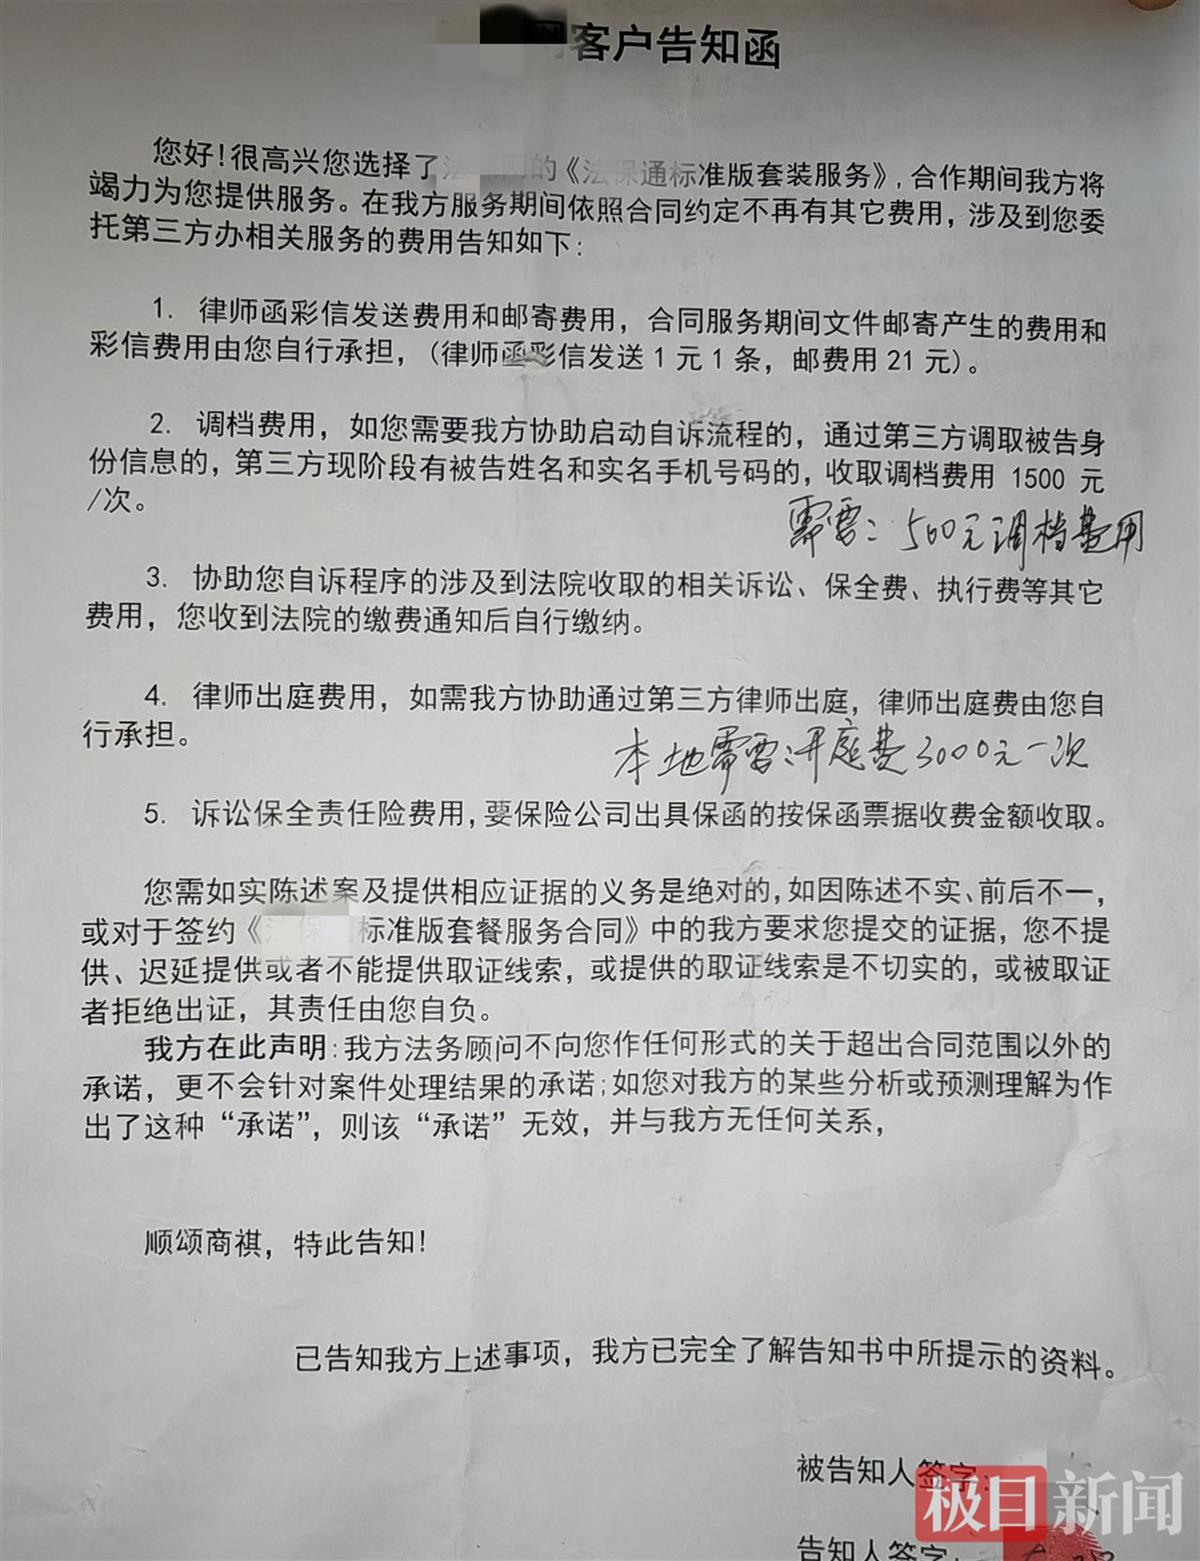 网客户告知函
您好!很高兴您选择了法 网的《法保通标准版套装服务》,合作期间我方将
竭力为您提供服务。在我方服务期间依照合同约定不再有其它费用,涉及到您委
托第三方办相关服务的费用告知如下:
1. 律师函彩信发送费用和邮寄费用,合同服务期间文件邮寄产生的费用和
彩信费用由您自行承担,(律师函彩信发送1元1条,邮费用21元)。
2. 调档费用,如您需要我方协助启动自诉流程的,通过第三方调取被告身
份信息的,第三方现阶段有被告姓名和实名手机号码的,收取调档费用 1500 元
/次。
需要:500元调档费用
3. 协助您自诉程序的涉及到法院收取的相关诉讼、保全费、执行费等其它
费用,您收到法院的缴费通知后自行缴纳。
4. 律师出庭费用,如需我方协助通过第三方律师出庭,律师出庭费由您自
行承担。
本地需要:开庭费3000元一次
5. 诉讼保全责任险费用,要保险公司出具保函的按保函票据收费金额收取。
您需如实陈述案及提供相应证据的义务是绝对的,如因陈述不实、前后不一,
或对于签约《 保 标准版套餐服务合同》中的我方要求您提交的证据,您不提
供、迟延提供或者不能提供取证线索,或提供的取证线索是不切实的,或被取证
者拒绝出证,其责任由您自负。
我方在此声明:我方法务顾问不向您作任何形式的关于超出合同范围以外的
承诺,更不会针对案件处理结果的承诺;如您对我方的某些分析或预测理解为作
出了这种“承诺”,则该“承诺”无效,并与我方无任何关系,
顺颂商祺,特此告知!
已告知我方上述事项,我方已完全了解告知书中所提示的资料。
被告知人签字:
极目新闻
告知人签字: